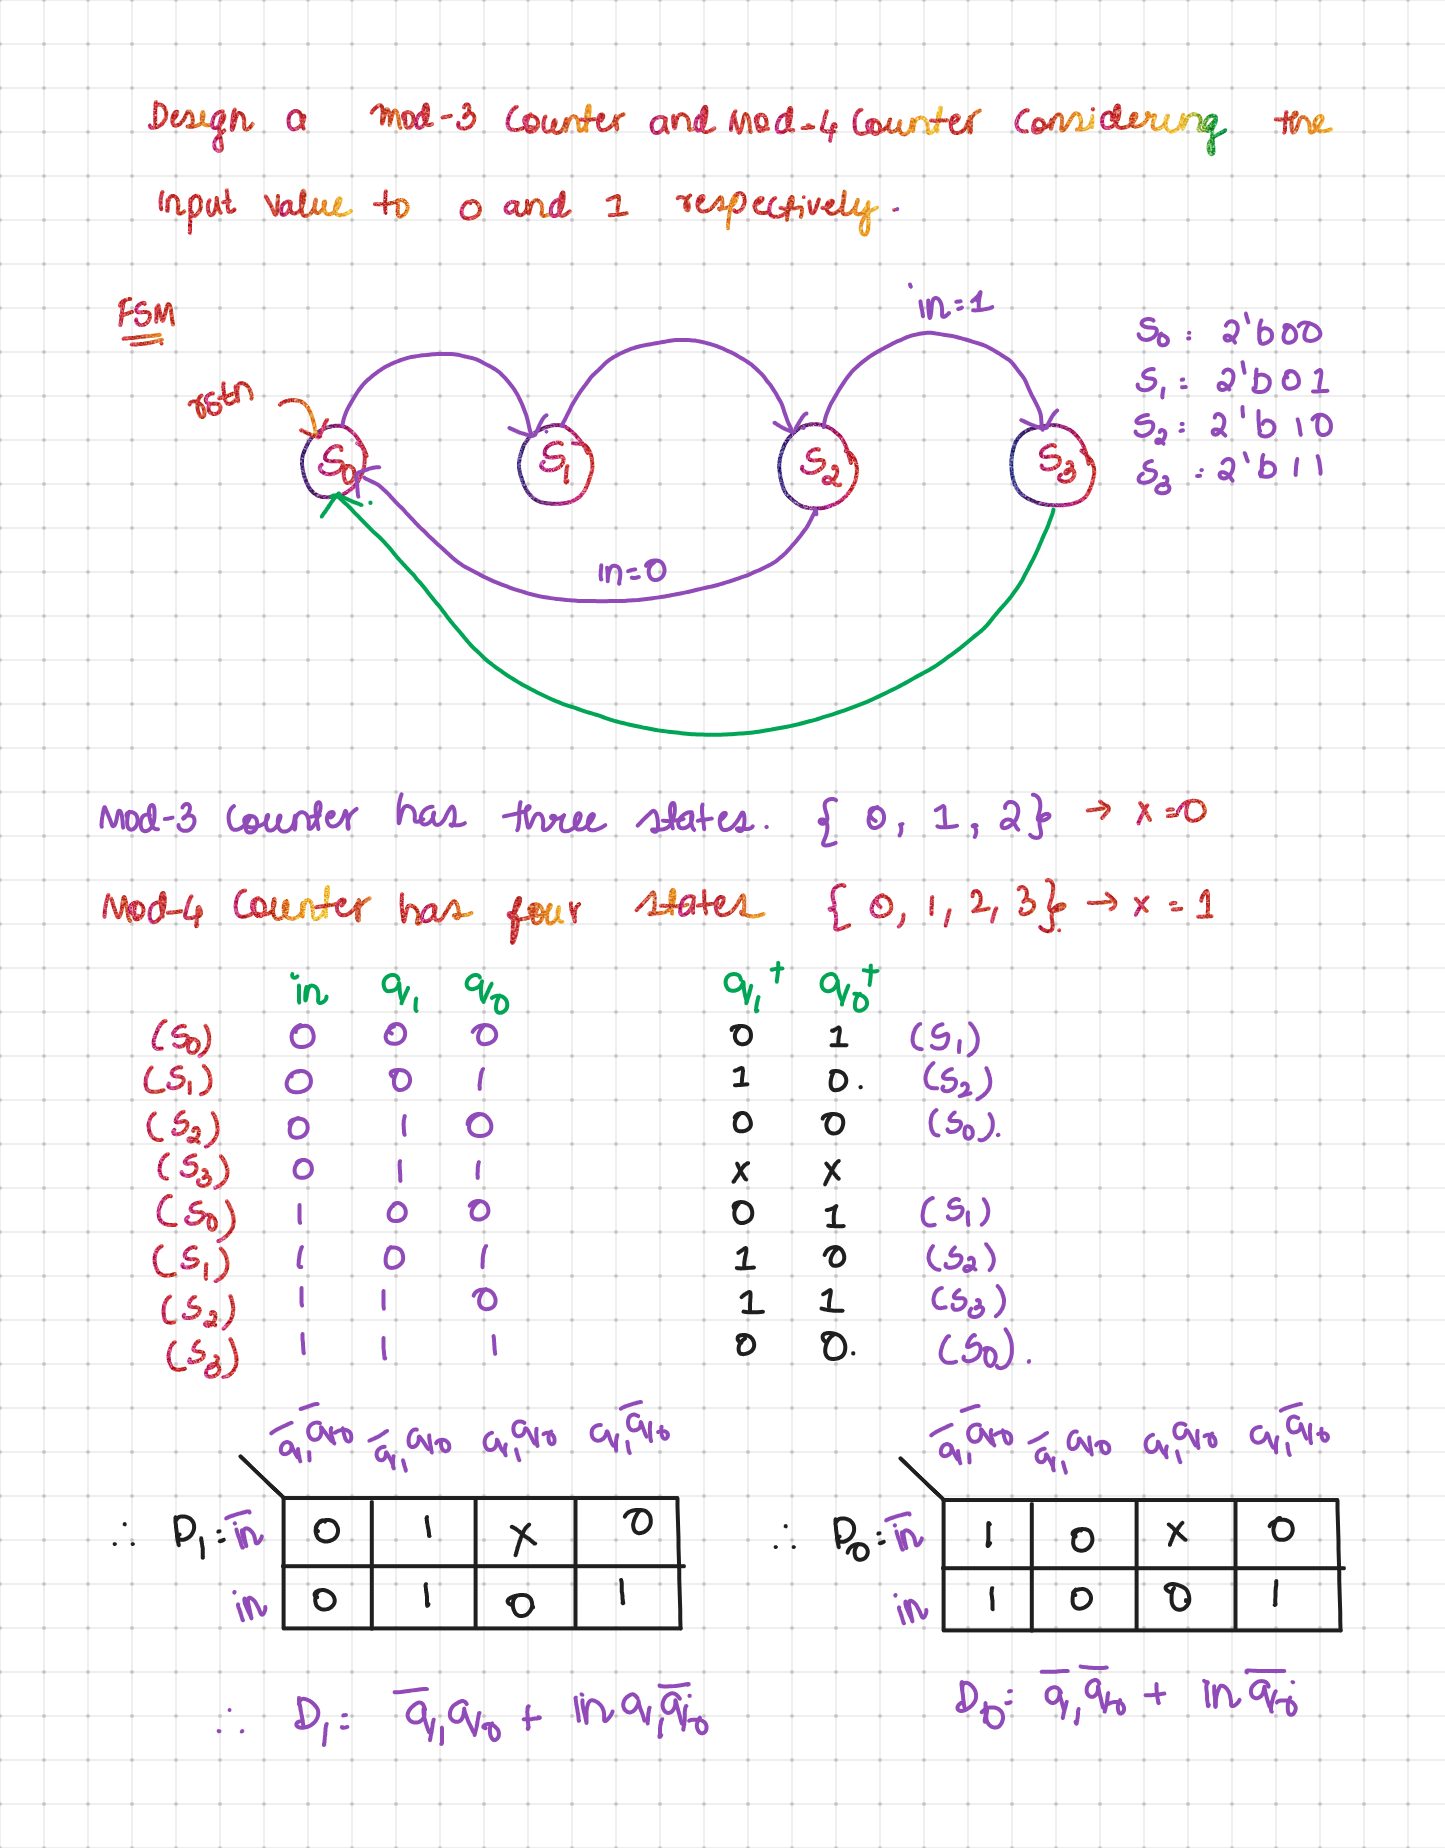 Design a Mod-3 Counter and Mod-4 Counter Considering the
Input Value to 0 and 1 respectively.
FSM
in=1
rstn
S₀ S₁ S₂ S₃
in=0
S₀ : 2'b00
S₁ : 2'b01
S₂ : 2'b10
S₃ : 2'b11
Mod-3 Counter has three states. { 0, 1, 2} → x=0
Mod-4 Counter has four states { 0, 1, 2, 3}. → x = 1
in q₁ q₀ q₁⁺ q₀⁺
(S₀) 0 0 0 0 1 (S₁)
(S₁) 0 0 1 1 0. (S₂)
(S₂) 0 1 0 0 0 (S₀).
(S₃) 0 1 1 x x
(S₀) 1 0 0 0 1 (S₁)
(S₁) 1 0 1 1 0 (S₂)
(S₂) 1 1 0 1 1 (S₃)
(S₃) 1 1 1 0 0. (S₀).
q̅₁q̅₀ q̅₁q₀ q₁q₀ q₁q̅₀
∴ D₁ = i̅n̅ 0 1 x 0
in 0 1 0 1
∴ D₁ = q̅₁q₀ + in q₁q̅₀
q̅₁q̅₀ q̅₁q₀ q₁q₀ q₁q̅₀
∴ D₀ = i̅n̅ 1 0 x 0
in 1 0 0 1
D₀ = q̅₁q̅₀ + in q̅₀